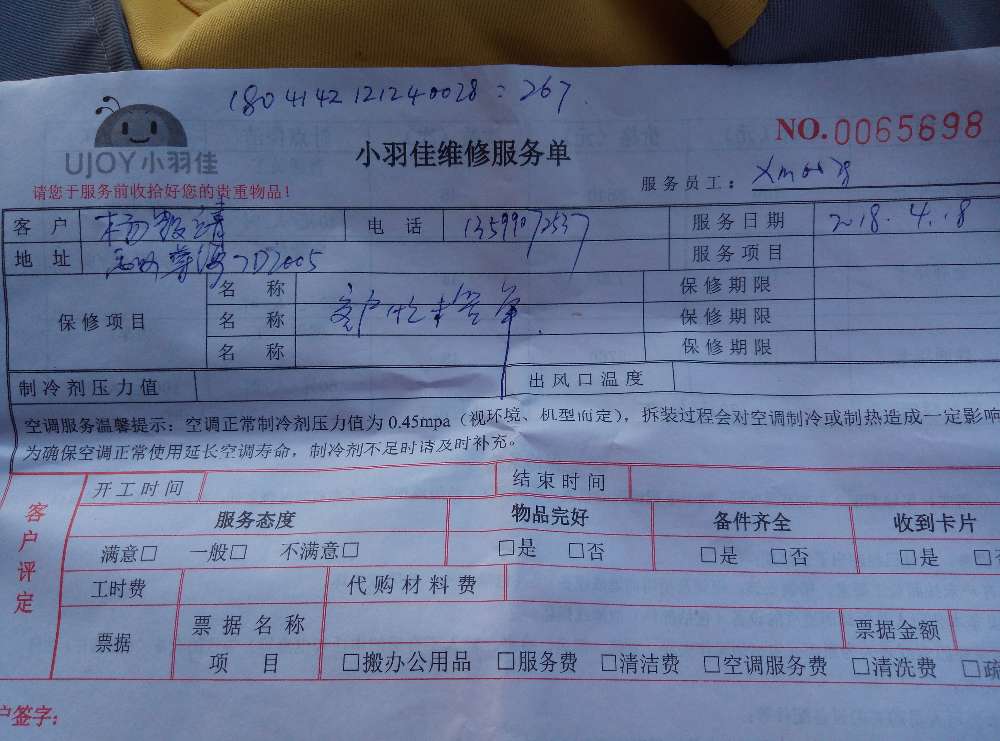 1804142121240028:267
NO.0065698
UJOY小羽佳
小羽佳维修服务单
请您于服务前收拾好您的贵重物品！
服务员工：
客 户 杨 靖 电 话 13599072537 服务日期 2018.4.18
地 址 2005 服务项目
保修项目 名 称 客户 保修期限
名 称 保修期限
名 称 保修期限
制冷剂压力值 出风口温度
空调服务温馨提示：空调正常制冷剂压力值为 0.45mpa（视环境、机型而定），拆装过程会对空调制冷或制热造成一定影响
为确保空调正常使用延长空调寿命，制冷剂不足时请及时补充。
客户评定
开工时间 结束时间
服务态度 物品完好 备件齐全 收到卡片
满意□ 一般□ 不满意□ □是 □否 □是 □否 □是 □
工时费 代购材料费
票据 票据名称 票据金额
项 目 □搬办公用品 □服务费 □清洁费 □空调服务费 □清洗费 □疏
户签字：